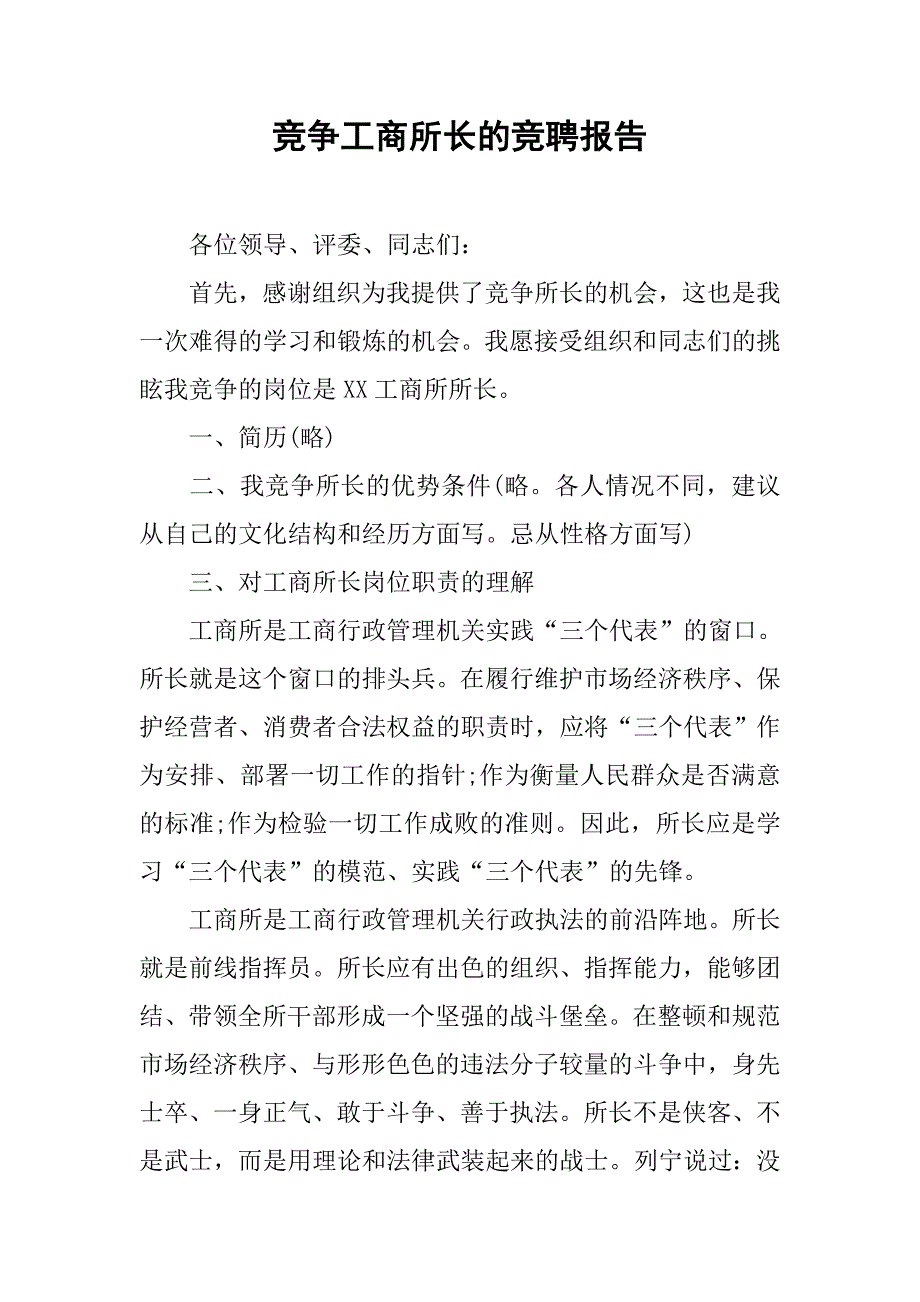 竞争工商所长的竞聘报告
各位领导、评委、同志们：
首先，感谢组织为我提供了竞争所长的机会，这也是我
一次难得的学习和锻炼的机会。我愿接受组织和同志们的挑
眩我竞争的岗位是XX工商所所长。
一、简历(略)
二、我竞争所长的优势条件(略。各人情况不同，建议
从自己的文化结构和经历方面写。忌从性格方面写)
三、对工商所长岗位职责的理解
工商所是工商行政管理机关实践“三个代表”的窗口。
所长就是这个窗口的排头兵。在履行维护市场经济秩序、保
护经营者、消费者合法权益的职责时，应将“三个代表”作
为安排、部署一切工作的指针;作为衡量人民群众是否满意
的标准;作为检验一切工作成败的准则。因此，所长应是学
习“三个代表”的模范、实践“三个代表”的先锋。
工商所是工商行政管理机关行政执法的前沿阵地。所长
就是前线指挥员。所长应有出色的组织、指挥能力，能够团
结、带领全所干部形成一个坚强的战斗堡垒。在整顿和规范
市场经济秩序、与形形色色的违法分子较量的斗争中，身先
士卒、一身正气、敢于斗争、善于执法。所长不是侠客、不
是武士，而是用理论和法律武装起来的战士。列宁说过：没